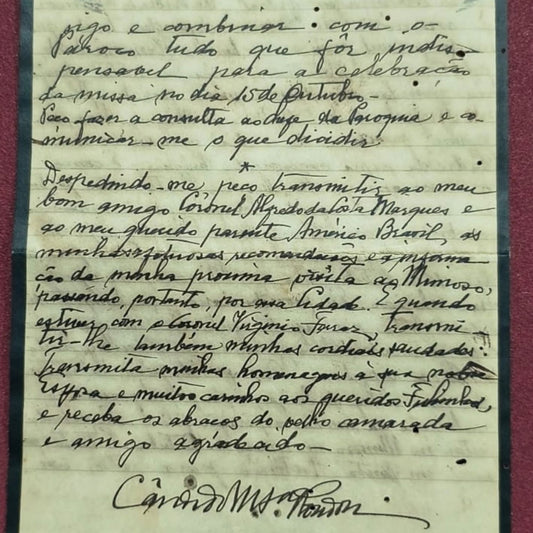 sigo e combinar com o
Pároco tudo que fôr indis-
pensavel para a celebração
da missa no dia 15 de Outubro.
Peço fazer a consulta ao da Paroquia e co-
municar-me o que dicidir.
*
Despedindo-me, peço transmitir ao meu
bom amigo Coronel Alfredo da Costa Marques e
ao meu querido parente Américo Brasil, as
minhas recomendações e a informa
ção da minha proxima visita ao Mimoso,
passando, portanto, por essa Cidade. E quando
estiver com o Coronel Virginio Ferraz, transmi
tir-lhe também minhas cordiais saudades.
Transmita minhas homenagens à sua nobre
Espôsa e muitos carinhos aos queridos Filhinhos,
e receba os abraços do velho camarada
e amigo agradecido-
Cândido M. S. Rondon